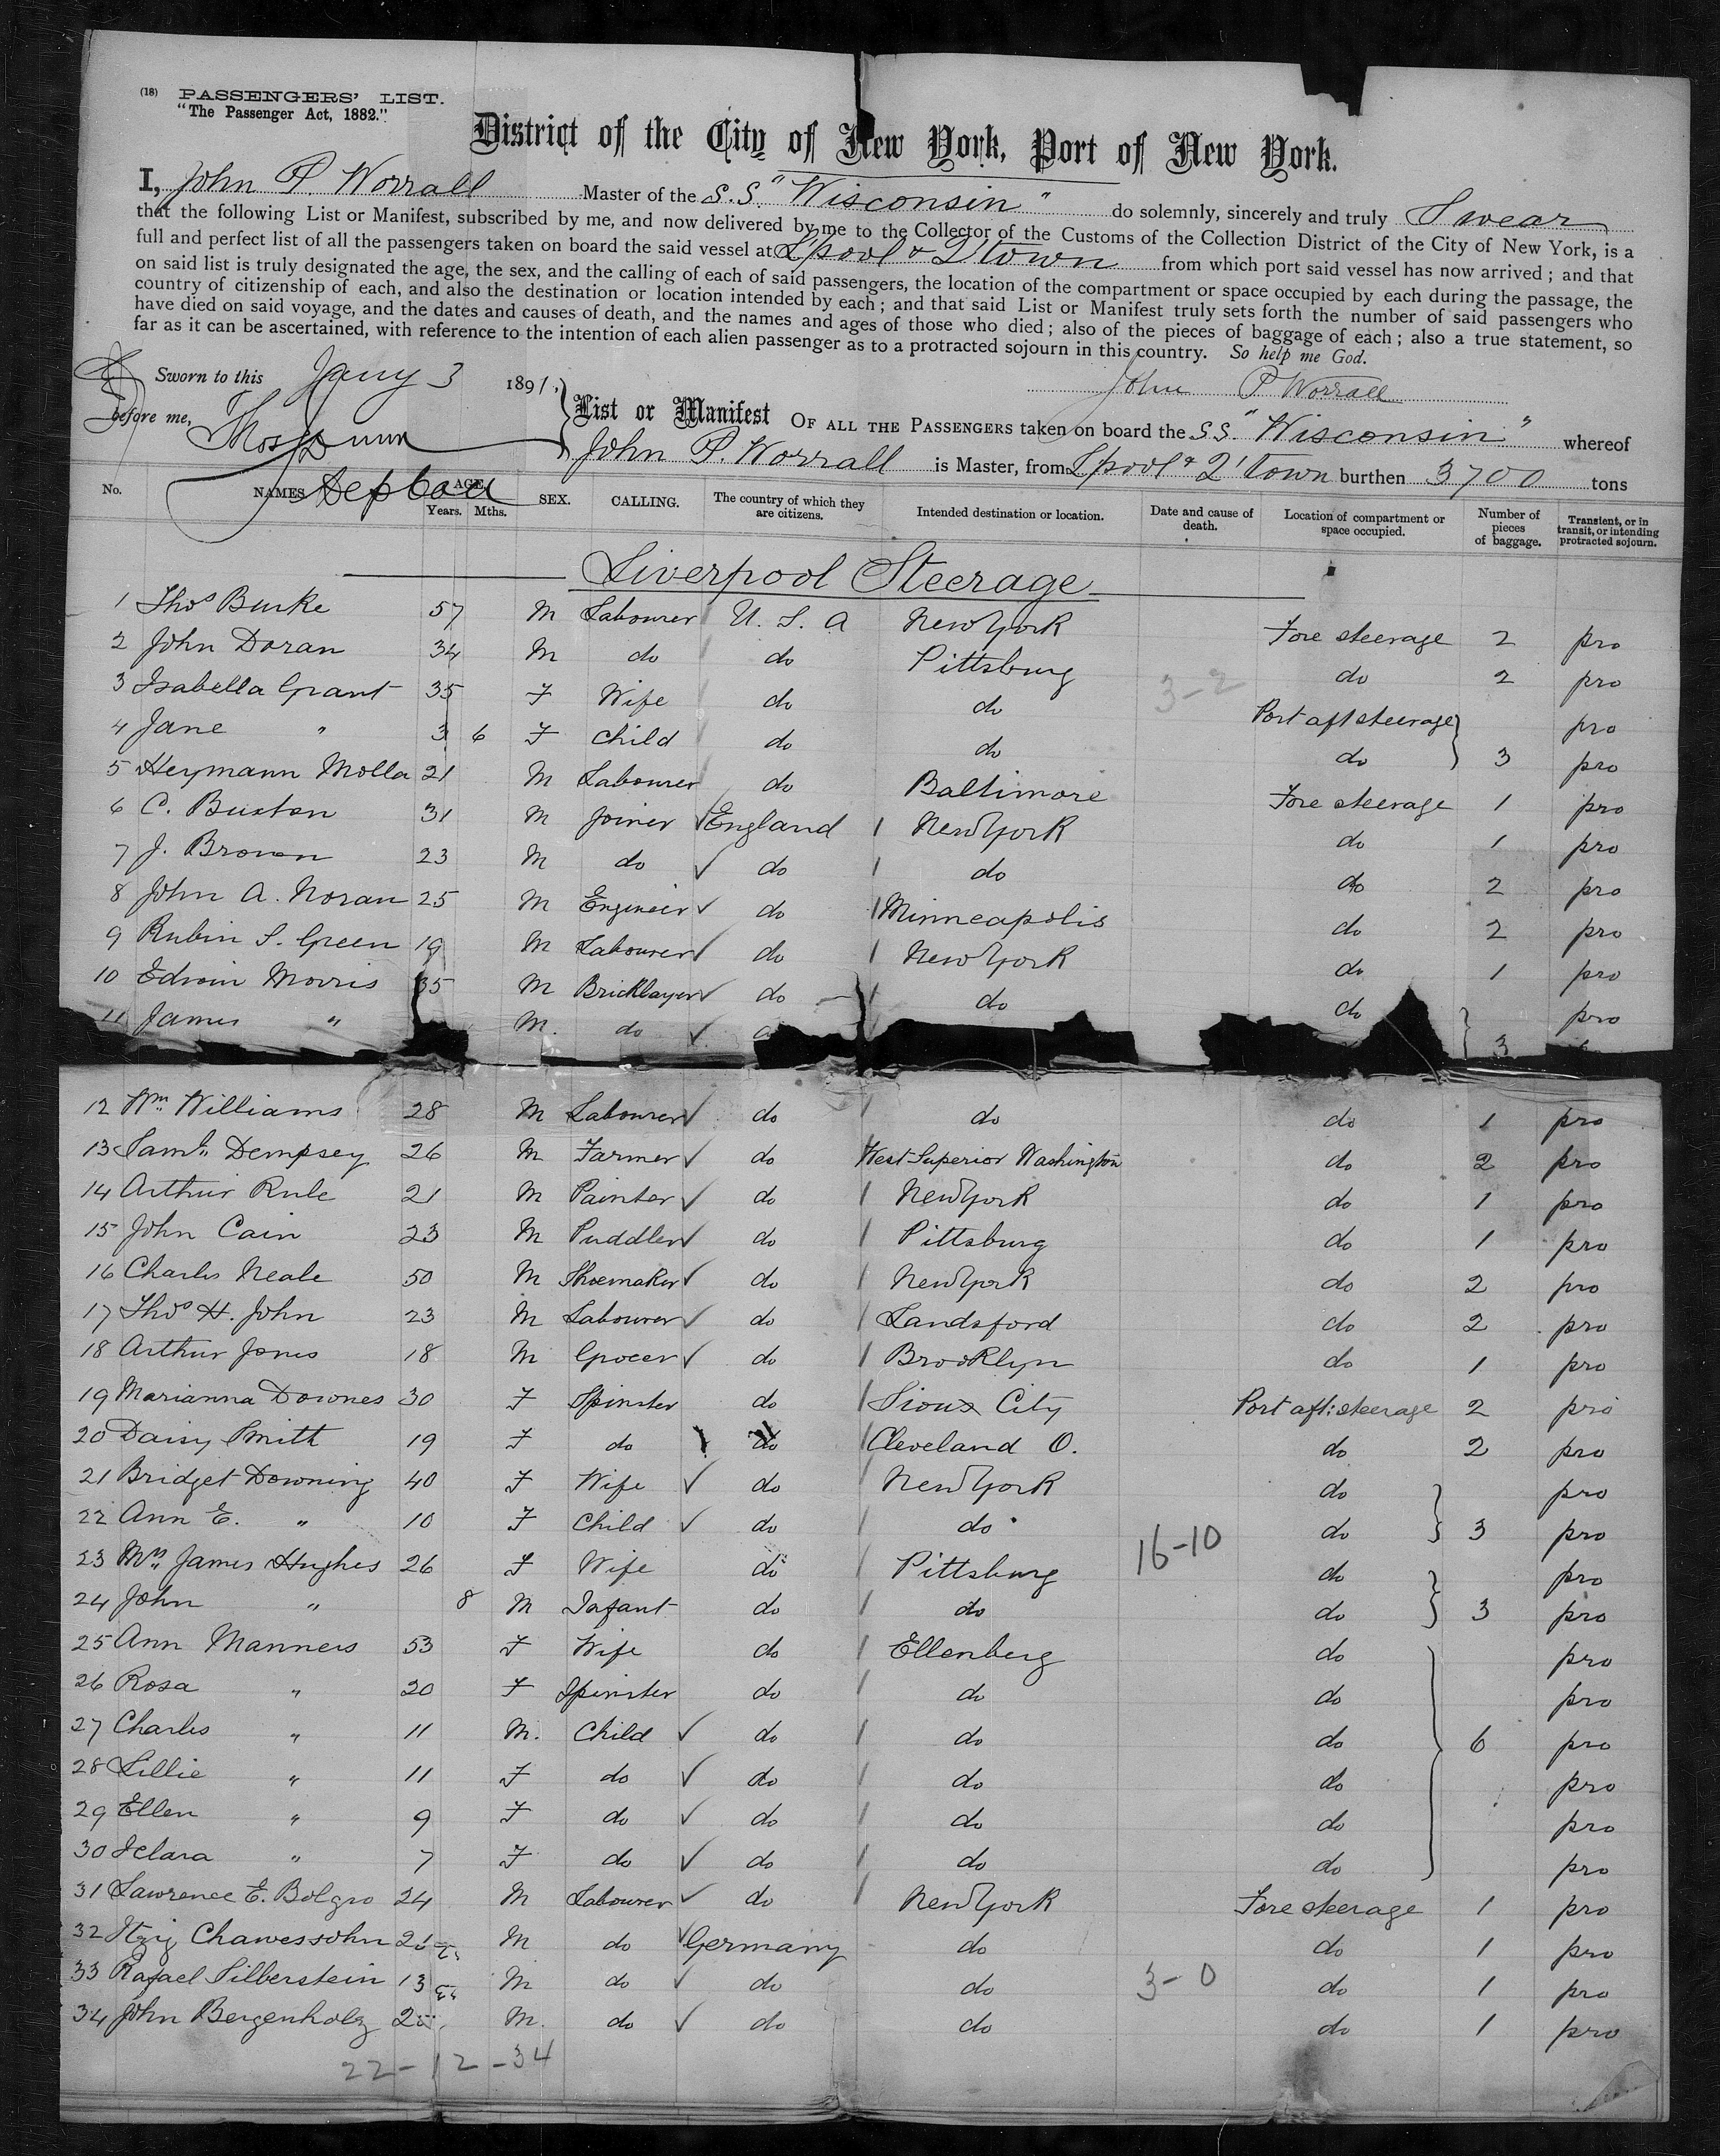 (18) PASSENGERS' LIST.
"The Passenger Act, 1882."
District of the City of New York, Port of New York.
I, John P. Worrall Master of the S.S. "Wisconsin" do solemnly, sincerely and truly Swear
that the following List or Manifest, subscribed by me, and now delivered by me to the Collector of the Customs of the Collection District of the City of New York, is a
full and perfect list of all the passengers taken on board the said vessel at L'pool & Q'town from which port said vessel has now arrived; and that
on said list is truly designated the age, the sex, and the calling of each of said passengers, the location of the compartment or space occupied by each during the passage, the
country of citizenship of each, and also the destination or location intended by each; and that said List or Manifest truly sets forth the number of said passengers who
have died on said voyage, and the dates and causes of death, and the names and ages of those who died; also of the pieces of baggage of each; also a true statement, so
far as it can be ascertained, with reference to the intention of each alien passenger as to a protracted sojourn in this country. So help me God.
Sworn to this Jany 3 1891. John P Worrall
before me, Thos Dunn
List or Manifest OF ALL THE PASSENGERS taken on board the S.S. "Wisconsin" whereof
John P. Worrall is Master, from L'pool & Q'town burthen 3700 tons
No. NAMES AGE. Years. Mths. SEX. CALLING. The country of which they are citizens. Intended destination or location. Date and cause of death. Location of compartment or space occupied. Number of pieces of baggage. Transient, or in transit, or intending protracted sojourn.
Dep Coll
Liverpool Steerage
1 Thos Burke 57 M Labourer U. S. A New York Fore steerage 2 pro
2 John Doran 34 M do do Pittsburg do 2 pro
3 Isabella Grant 35 F Wife do do 3-2 Port aft steerage pro
4 Jane " 3 6 F Child do do do 3 pro
5 Heymann Molla 21 M Labourer do Baltimore Fore steerage 1 pro
6 C. Buxton 31 M Joiner England New York do 1 pro
7 J. Brown 23 M do do do do 2 pro
8 John A. Noran 25 M Engineer do Minneapolis do 2 pro
9 Rubin S. Green 19 M Labourer do New York do 1 pro
10 Edwin Morris 35 M Bricklayer do do do pro
11 James " M. do 3
12 Wm Williams 28 M Labourer do do do 1 pro
13 Saml. Dempsey 26 M Farmer do West Superior Washington do 2 pro
14 Arthur Rule 21 M Painter do New York do 1 pro
15 John Cain 23 M Puddler do Pittsburg do 1 pro
16 Charles Neale 50 M Shoemaker do New York do 2 pro
17 Thos H. John 23 M Labourer do Landsford do 2 pro
18 Arthur Jones 18 M Grocer do Brooklyn do 1 pro
19 Marianna Downes 30 F Spinster do Sioux City Port aft: steerage 2 pro
20 Daisy Smith 19 F do do Cleveland O. do 2 pro
21 Bridget Downing 40 F Wife do New York do pro
22 Ann E. " 10 F Child do do do 3 pro
16-10
23 Mrs. James Hughes 26 F Wife do Pittsburg do pro
24 John " 8 M Infant do do do 3 pro
25 Ann Manners 53 F Wife do Ellenberg do pro
26 Rosa " 20 F Spinster do do do pro
27 Charles " 11 M. Child do do do 6 pro
28 Lillie " 11 F do do do do pro
29 Ellen " 9 F do do do do pro
30 " 7 F do do do do pro
31 Lawrence E. Bolgro 24 M Labourer do New York Fore steerage 1 pro
32 Itzig Chawessohn M do Germany do do 1 pro
33 Rafael Silberstein 13 M do do do 3-0 do 1 pro
34 John Bergenholz M. do do do do 1 pro
22-12-34